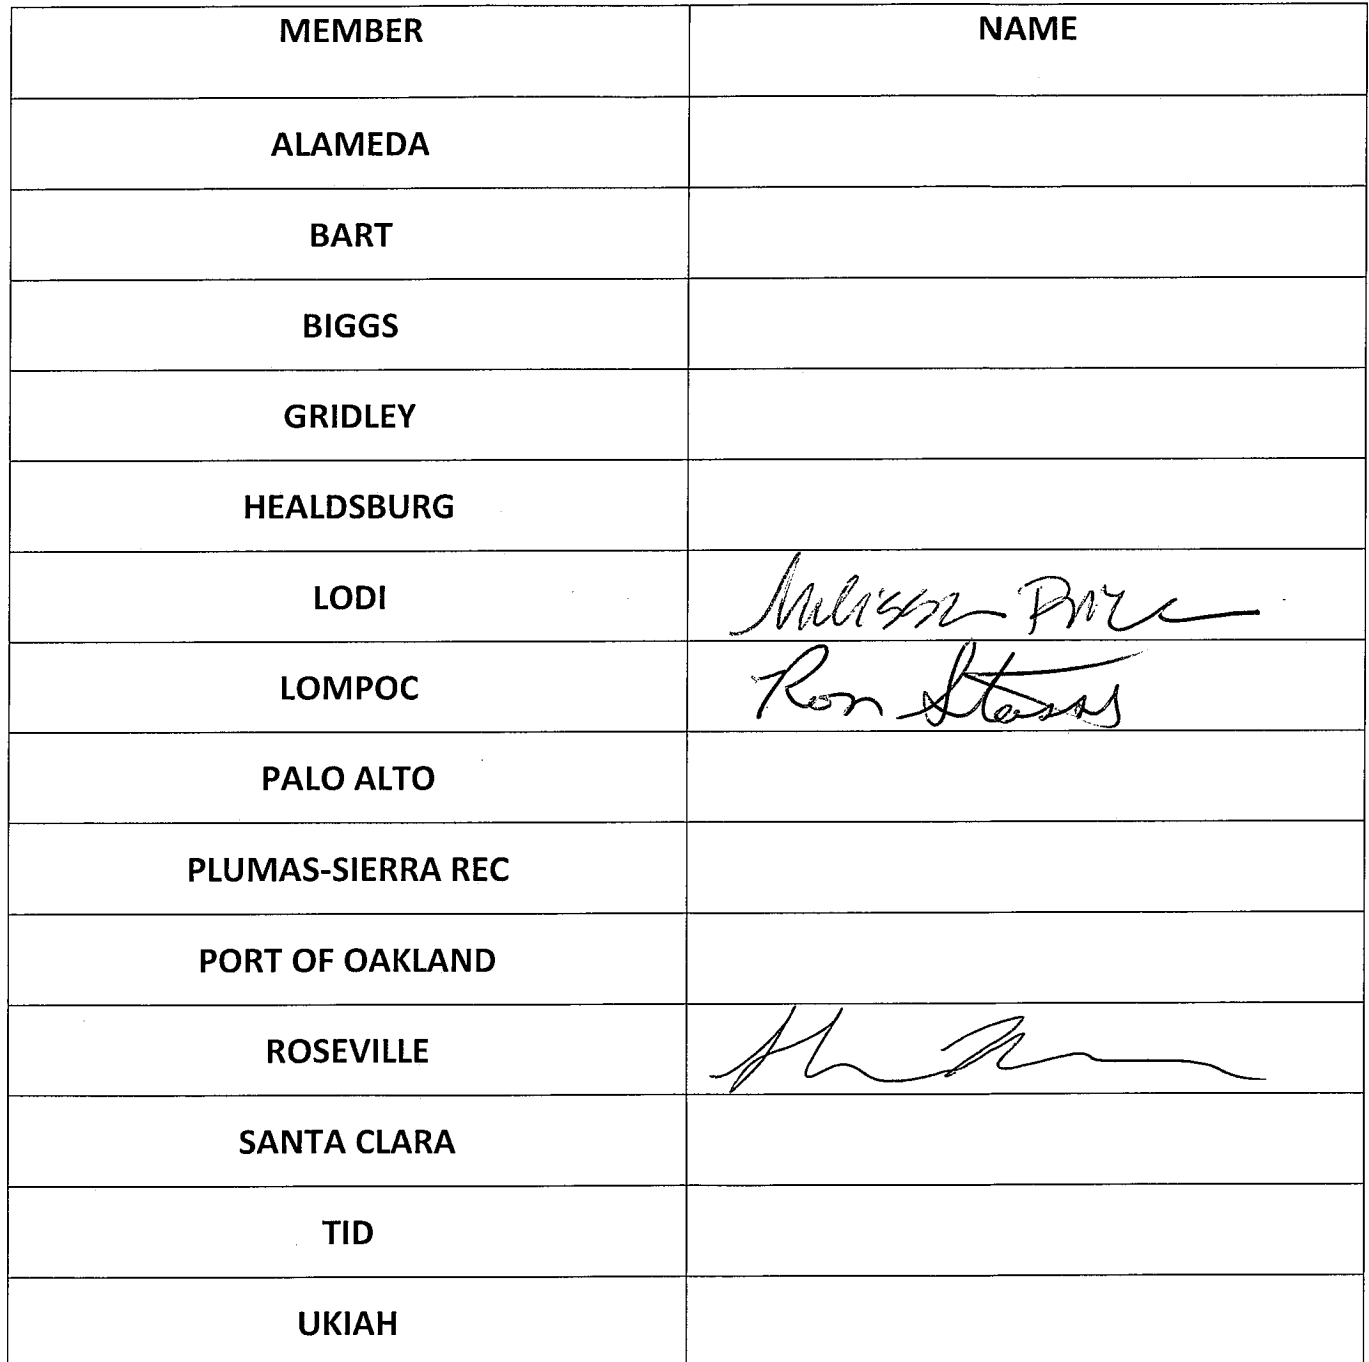 MEMBER NAME
ALAMEDA
BART
BIGGS
GRIDLEY
HEALDSBURG
LODI Melissa Price
LOMPOC Ron
PALO ALTO
PLUMAS-SIERRA REC
PORT OF OAKLAND
ROSEVILLE
SANTA CLARA
TID
UKIAH